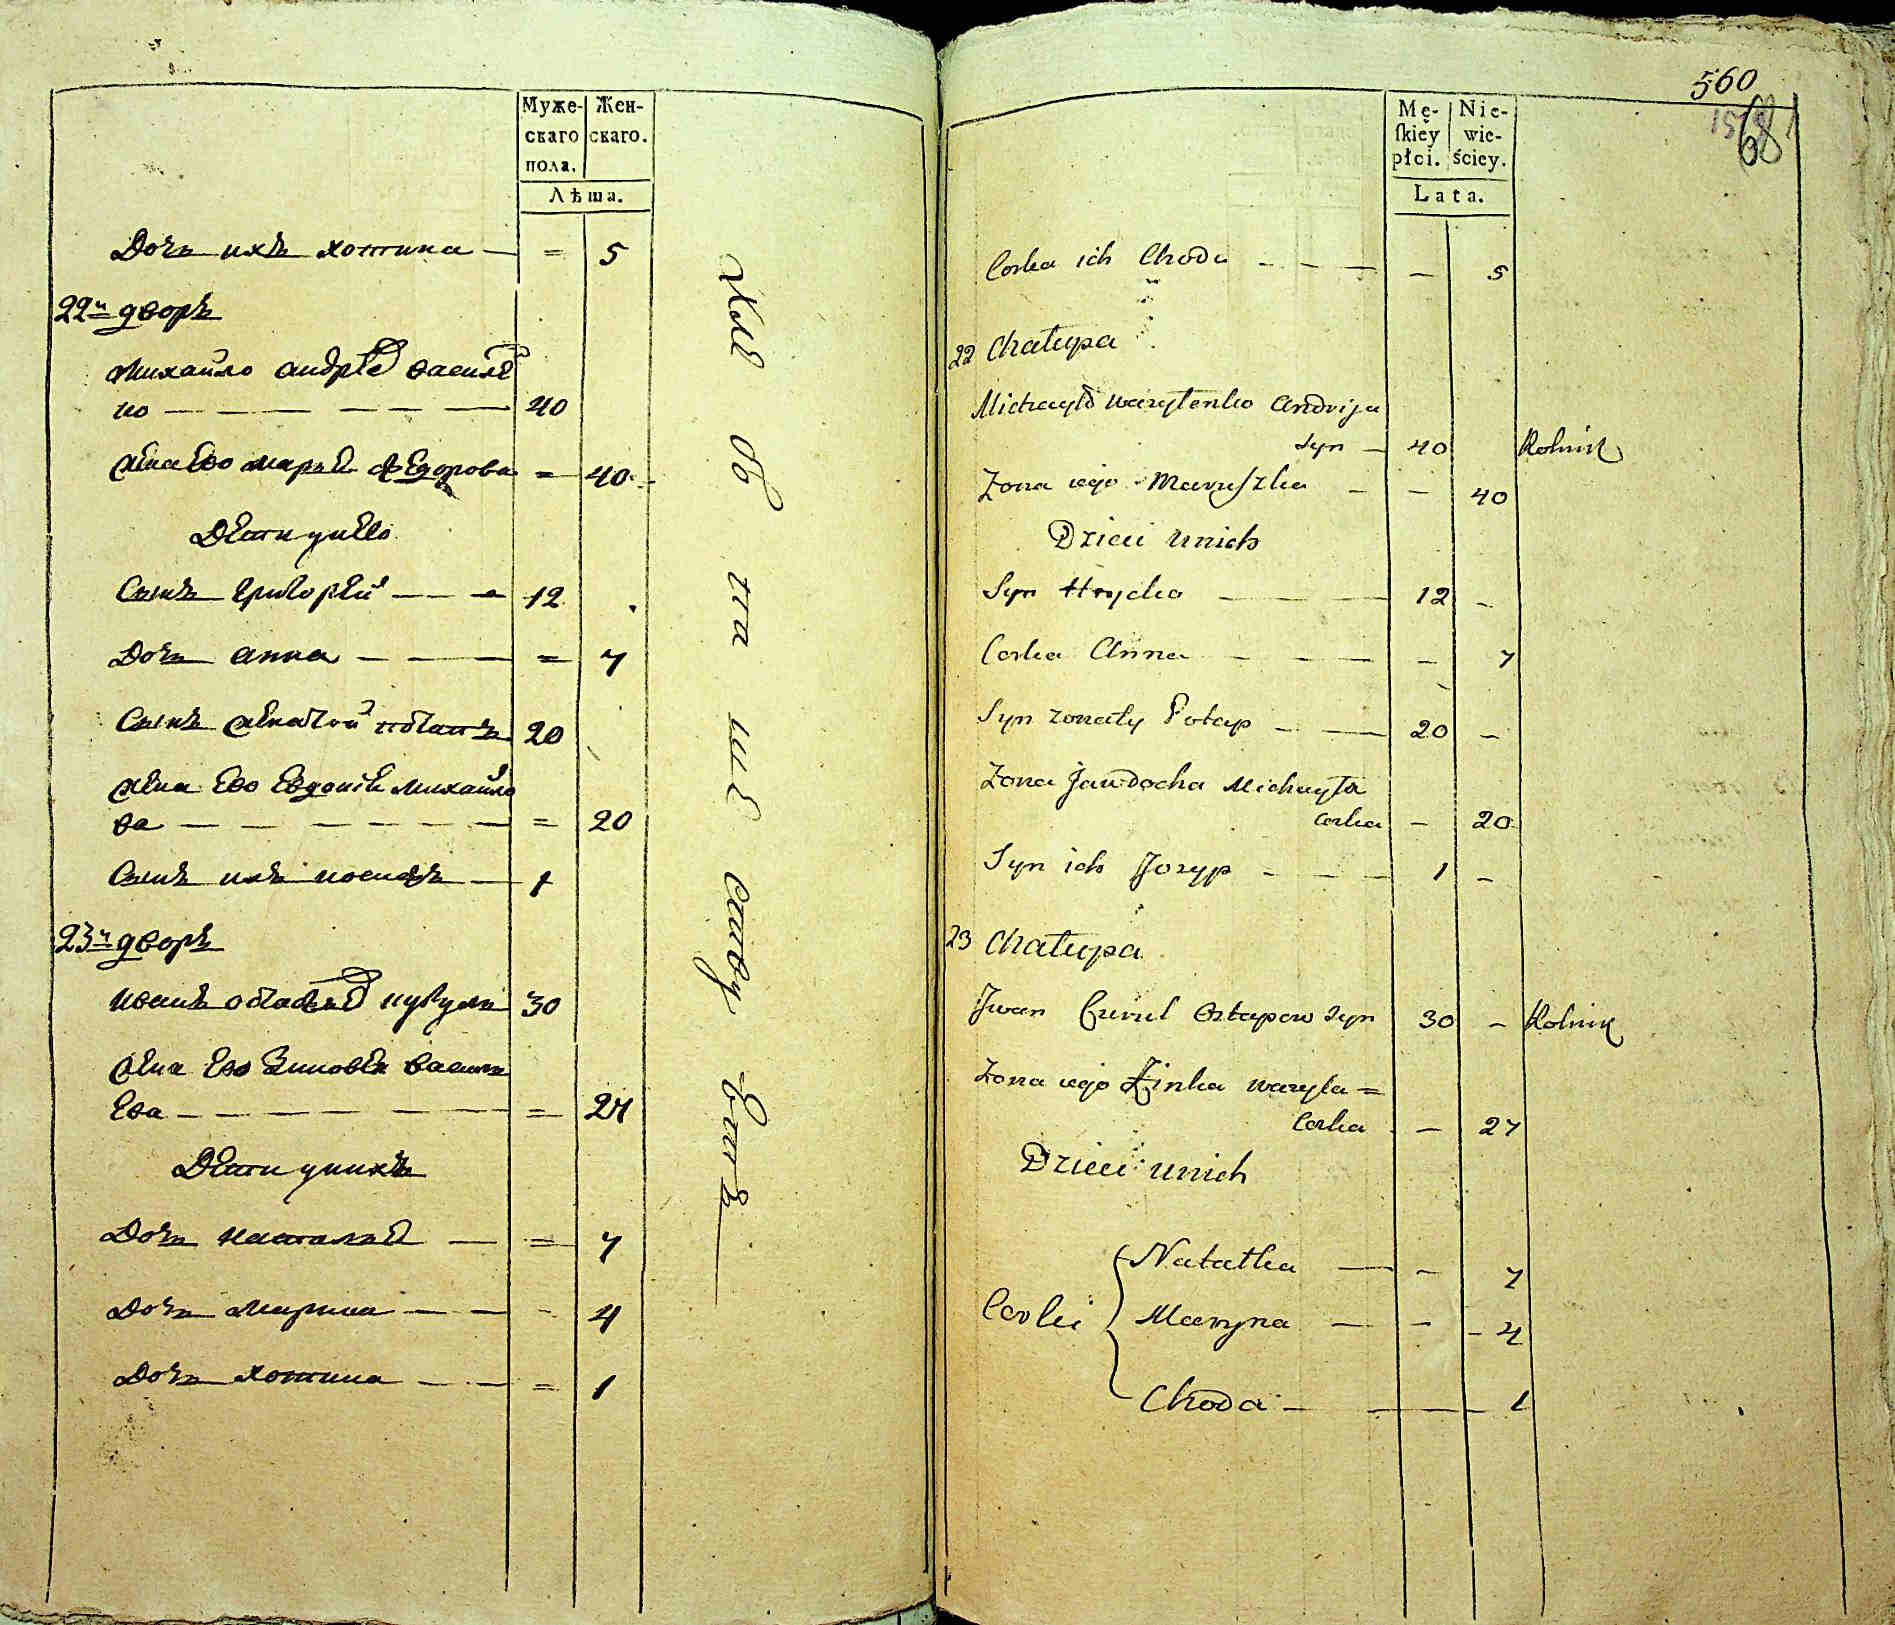 Муже- Жен-
скаго скаго.
пола.
Лѣта.
Дочь ихъ хотина — = 5
22й дворъ
Михайло андрѣев васил
ко — — — — — 40
жена ево марья федорова = 40
Дети унево
Сынъ григорей — — 12
Дочь анна — — = 7
Сынъ женатой потапъ 20
жена ево евдокия михайло
ва — — — — — = 20
Сынъ ихъ иосифъ — 1
23й дворъ
иванъ остафьев курулъ 30
жена ево зиновья василь
ева — — — — = 27
Дети унихъ
Дочь наталья — = 7
Дочь марина — — - 4
Дочь хотина — — = 1
560
68
Mę- Nie-
ſkiey wie-
płci. ściey.
Lata.
Corka ich Choda - - - — 5
22 Chałupa
Michayło wasylenko Andrija
syn — 40 Rolnik
Żona iego Maruszka — — 40
Dzieci unich
Syn Hrycko — — — 12 -
Corka Anna — — — — 7
Syn zonaty Potap - — 20 -
Zona Jawdocha Michayła
corka — 20
Syn ich Jozyp - - - 1 -
23 Chałupa
Jwan Curul Ostapow syn 30 - Rolnik
Zona iego Zinka wasyla =
Corka - — 27
Dzieci unich
Corki { Natalka — - 7
Maryna — - - 4
Choda - — — 1